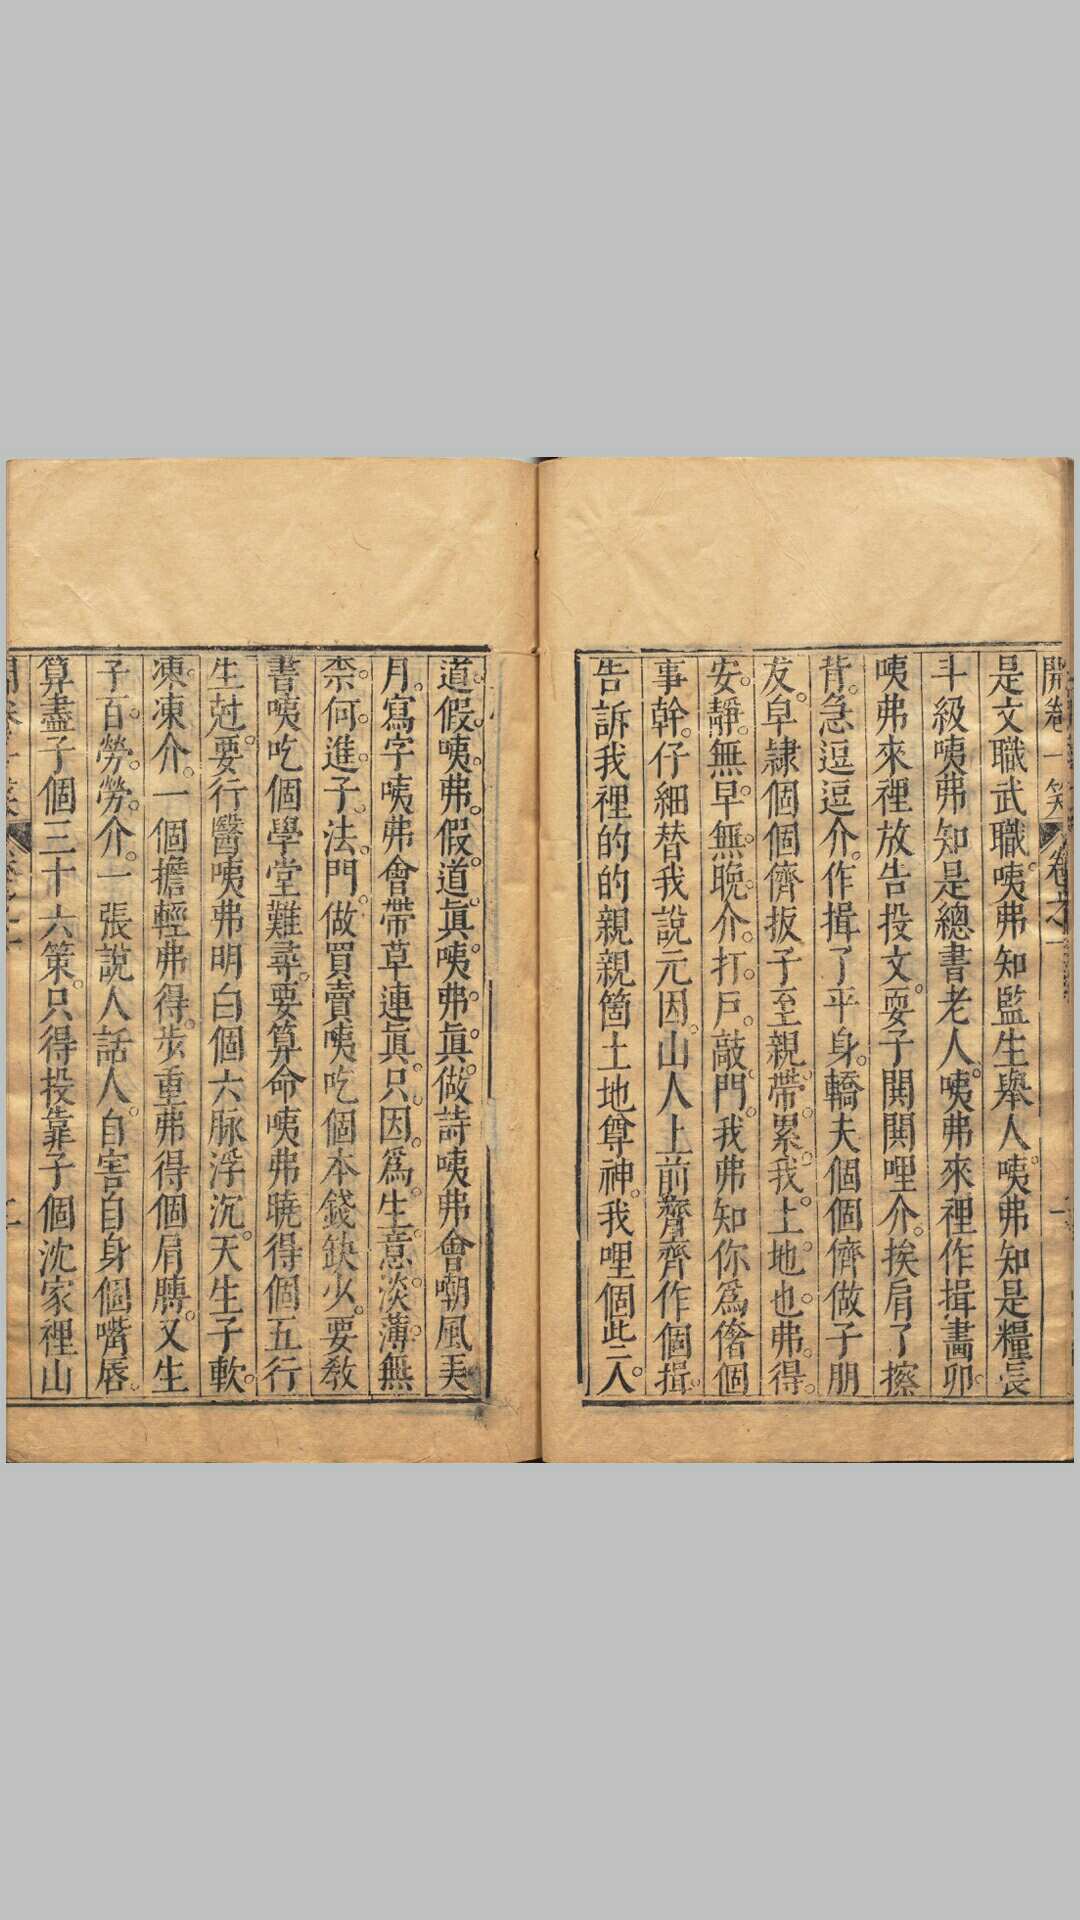 開卷一笑 卷之一 一
是文職武職咦弗知監生舉人咦弗知是糧長
斗級咦弗知是總書老人咦弗來裡作揖畵卯
咦弗來裡放告投文耍子閧閧哩介挨肩了擦
背急逗逗介作揖了平身轎夫個個儕做子朋
友皁隷個個儕扳子至親帶累我上地也弗得
安靜無早無晚介打戶敲門我弗知你爲僭個
事幹仔細替我說元因山人上前齊齊作個揖
告訴我裡的的親親箇土地尊神我哩個此二人
道假咦弗假道眞咦弗眞做詩咦弗會嘲風弄
月寫字咦弗會帶草連眞只因爲生意淡薄無
柰何進子法門做買賣咦吃個本錢缺少要敎
書咦吃個學堂難尋要算命咦弗曉得個五行
生尅要行醫咦弗明白個六脉浮沉天生子軟
凍凍介一個擔輕弗得步重弗得個肩膊又生
子百勞勞介一張說人話人自害自身個嘴唇
算盡子個三十六策只得投靠子個沈家裡山